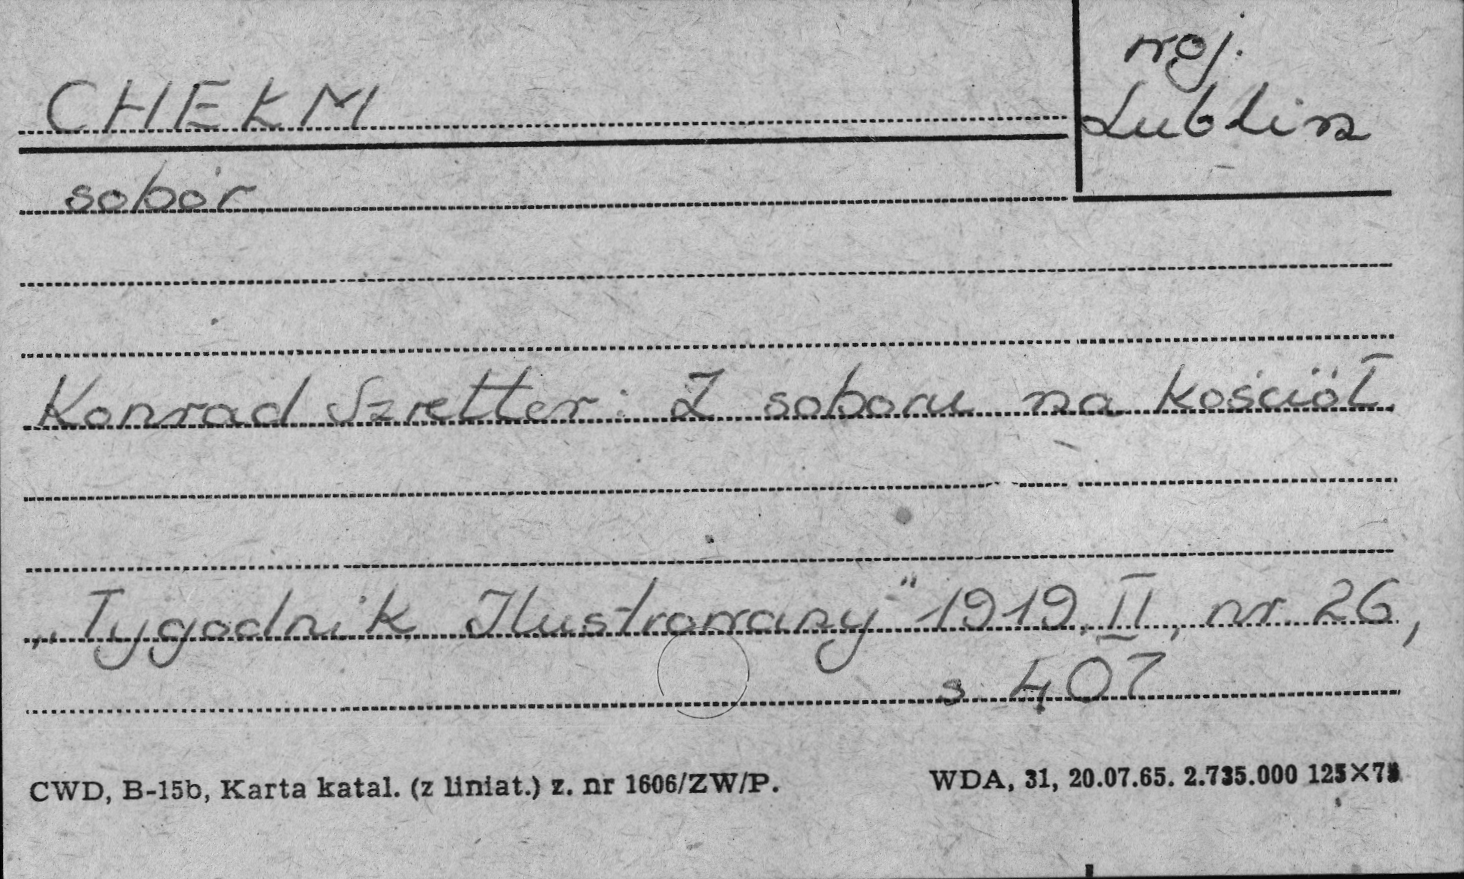 CHEŁM
woj.
Lublin
sobór
Konrad Szretter: Z soboru na kościół.
„Tygodnik Ilustrowany" 1919, II, nr 26,
s. 407
CWD, B-15b, Karta katal. (z liniat.) z. nr 1606/ZW/P.
WDA, 31, 20.07.65. 2.735.000 125×75